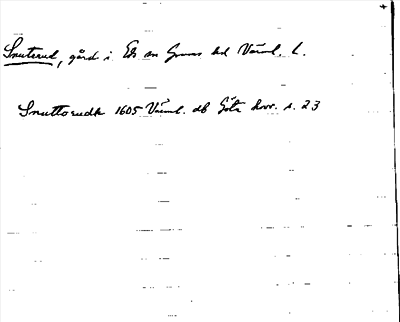 Snuterud, gård i Eds sn Grums hd Värml. l.
Snuttorudh 1605 Värml. db Göta hovr. s. 23